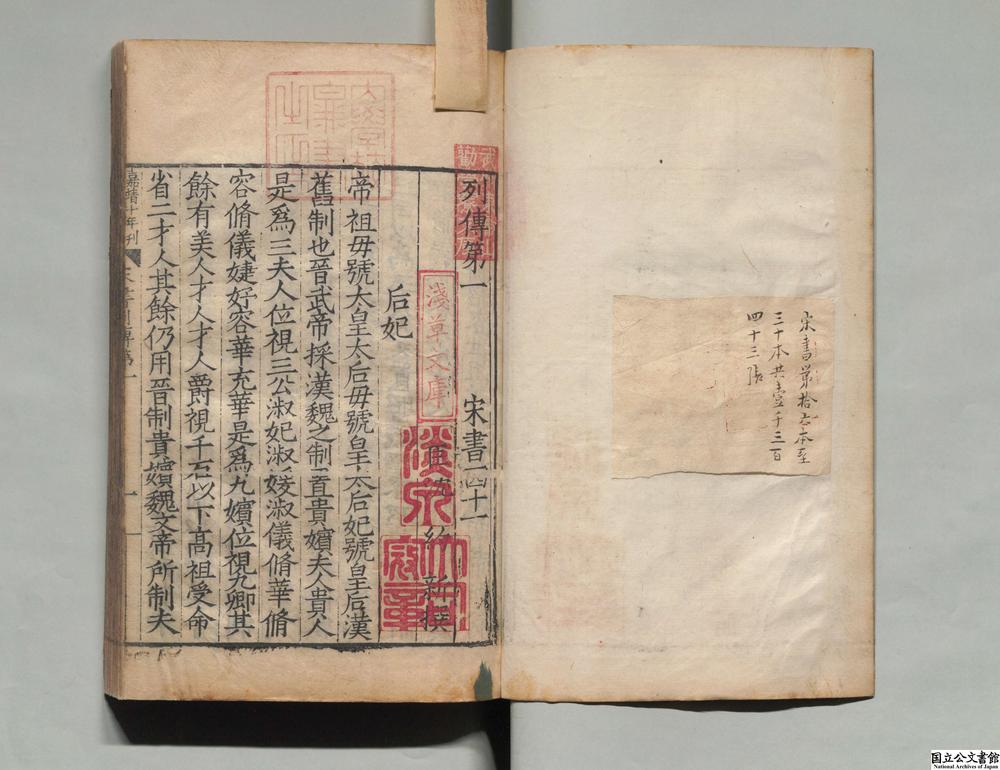 宋書第拾六本至
三十本共壹千三百
四十三張
列傳第一
宋書四十一
臣沈約新撰
后妃
帝祖母號太皇太后母號皇太后妃號皇后漢
舊制也晉武帝採漢魏之制置貴嬪夫人貴人
是爲三夫人位視三公淑妃淑媛淑儀脩華脩
容脩儀婕妤容華充華是爲九嬪位視九卿其
餘有美人才人才人爵視千石以下高祖受命
省二才人其餘仍用晉制貴嬪魏文帝所制夫
嘉靖十年刊
宋書列傳第一
一
淺草文庫
國立公文書館
National Archives of Japan